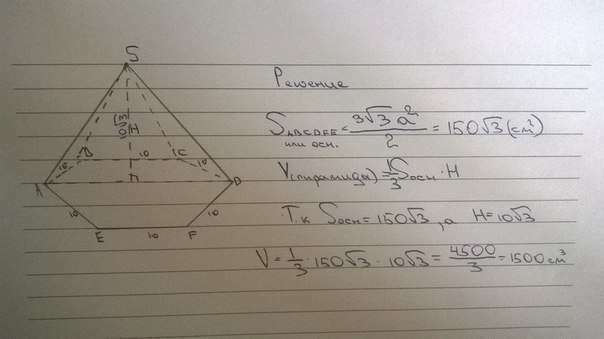 S
10√3
H
B
10
C
10
10
A
D
10
10
E
10
F
Решение
S ABCDEF = 3√3 a² / 2 = 150√3 (см²)
или осн.
V(пирамида) = 1/3 Sосн · H
Т.к Sосн = 150√3, а H = 10√3
V = 1/3 · 150√3 · 10√3 = 4500/3 = 1500 см³